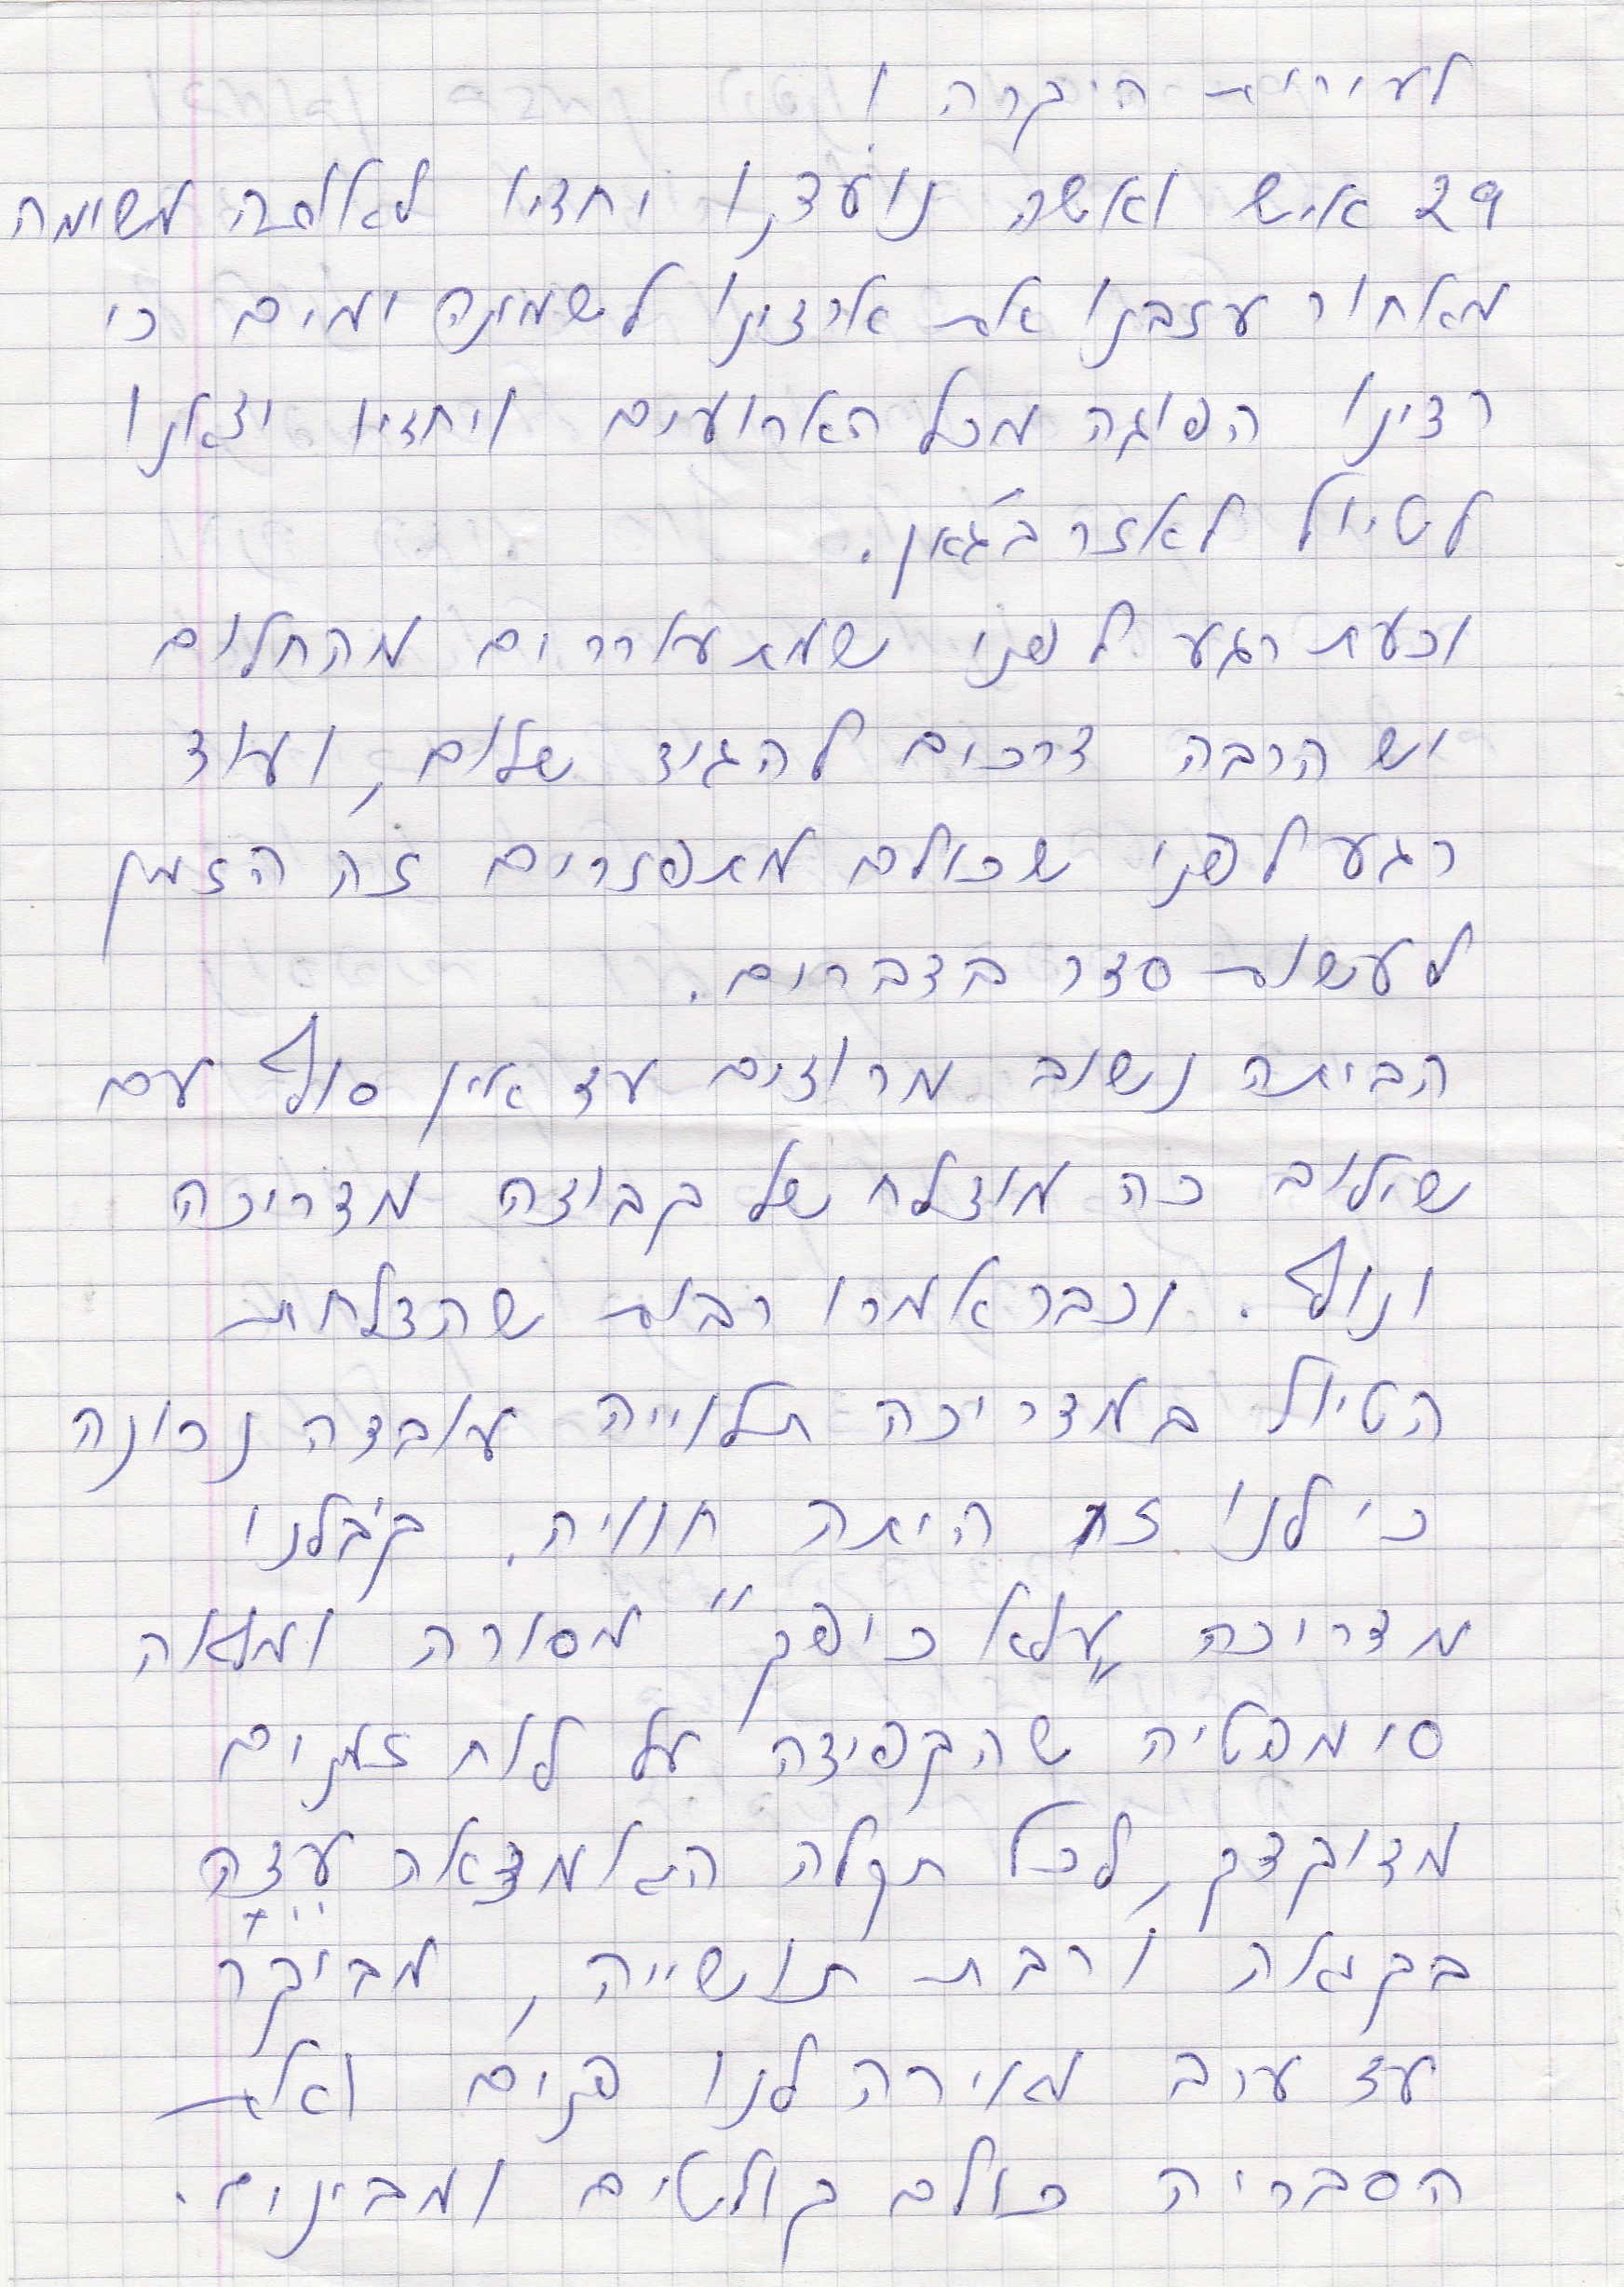 לעירית היקרה !
29 איש ואשה נועדנו יחדיו לגולה משימה
מאחור עזבנו את ארצינו לשמונה ימים כי
רצינו הפוגה מכל הארועים ויחדיו יצאנו
לטיול לאזרבג'אן.
וכעת רגע לפני שמתעוררים מהחלום
ויש הרבה דרכים להגיד שלום, ועוד
רגע לפני שכולם מתפזרים זה הזמן
לעשות סדר בדברים.
הביתה נשוב מרוצים עד אין סוף עם
שילוב כה מוצלח של קבוצה מדריכה
ונוף. וכבר אמרו רבות שהצלחת
הטיול במדריכה תלוייה עובדה נכונה
כי לנו זה היתה חוויה. קיבלנו
מדריכה "עלא כיפק" מסורה ומלאה
סימפטיה שהקפידה על לוח זמנים
מדוקדק, לכל תקלה המציאה עיצה
בקיאה ורבת תושייה, מבוקר
עד ערב מאירה לנו פנים ואת
הסבריה כולם קולטים ומבינים.